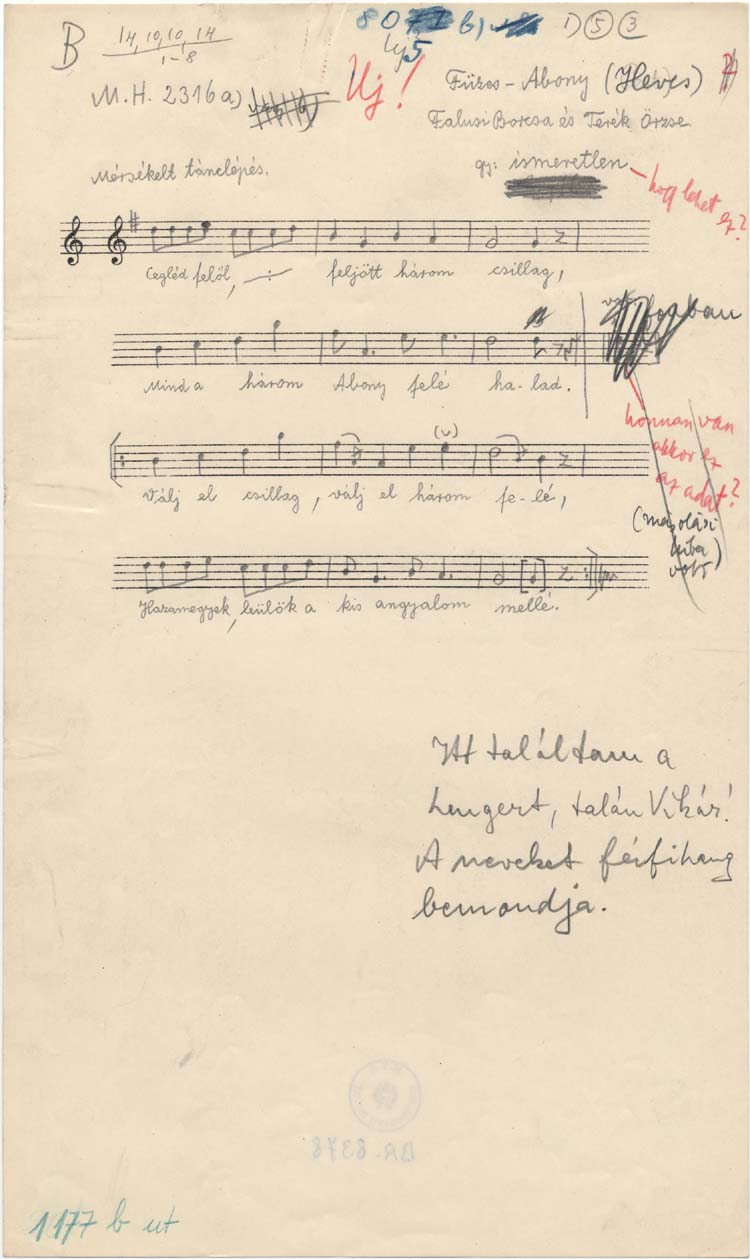 B 14, 10, 10, 14
1-8
b)
1) 5 3
Uj!
Füzes-Abony (Heves) ?
M.H. 2316 a)
Falusi Borcsa és Terék Örzse
Mérsékelt tánclépés.
gy: ismeretlen
hogy lehet ez?
Cegléd felől, feljött három csillag,
Mind a három Abony felé ha-lad.
honnan van
akkor ez
az adat?
Válj el csillag, válj el három fe-lé,
(másolási
hiba)
volt
Hazamegyek, leülök a kis angyalom mellé.
Itt találtam a
hengert, talán Vikár!
A neveket férfihang
bemondja.
BR-8378
1177 b ut